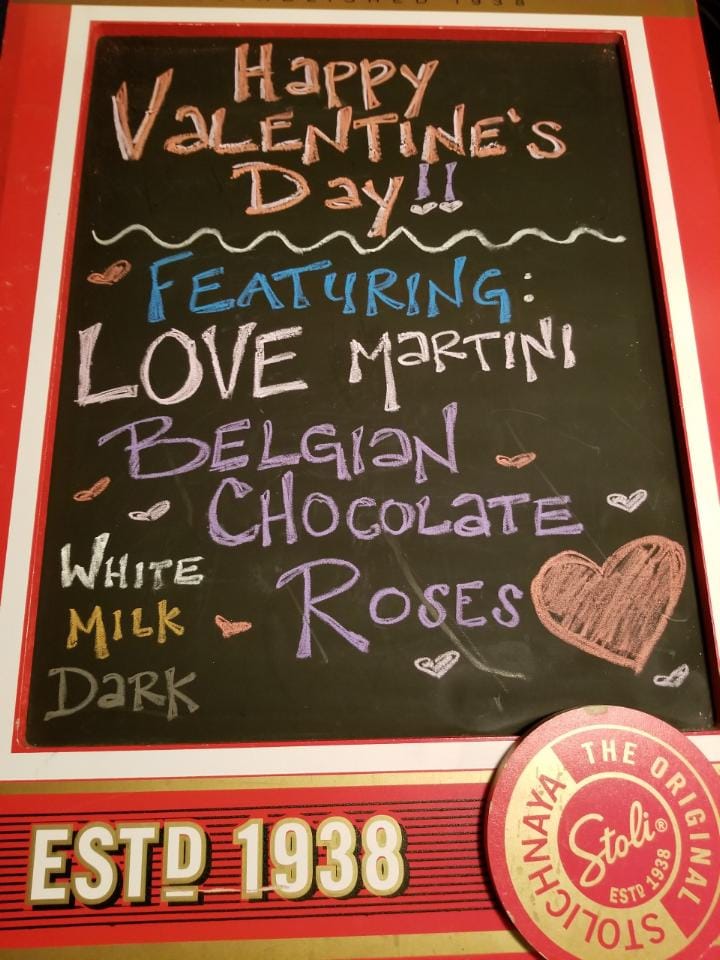 ESTABLISHED 1938
Happy
VaLENTINE's
Day!!
FEATURING:
LOVE MaRTINI
BELGIaN
CHOCOLaTE
ROSES
WHITE
MILK
DaRK
ESTD 1938
THE ORIGINAL
STOLICHNAYA
Stoli®
ESTD 1938